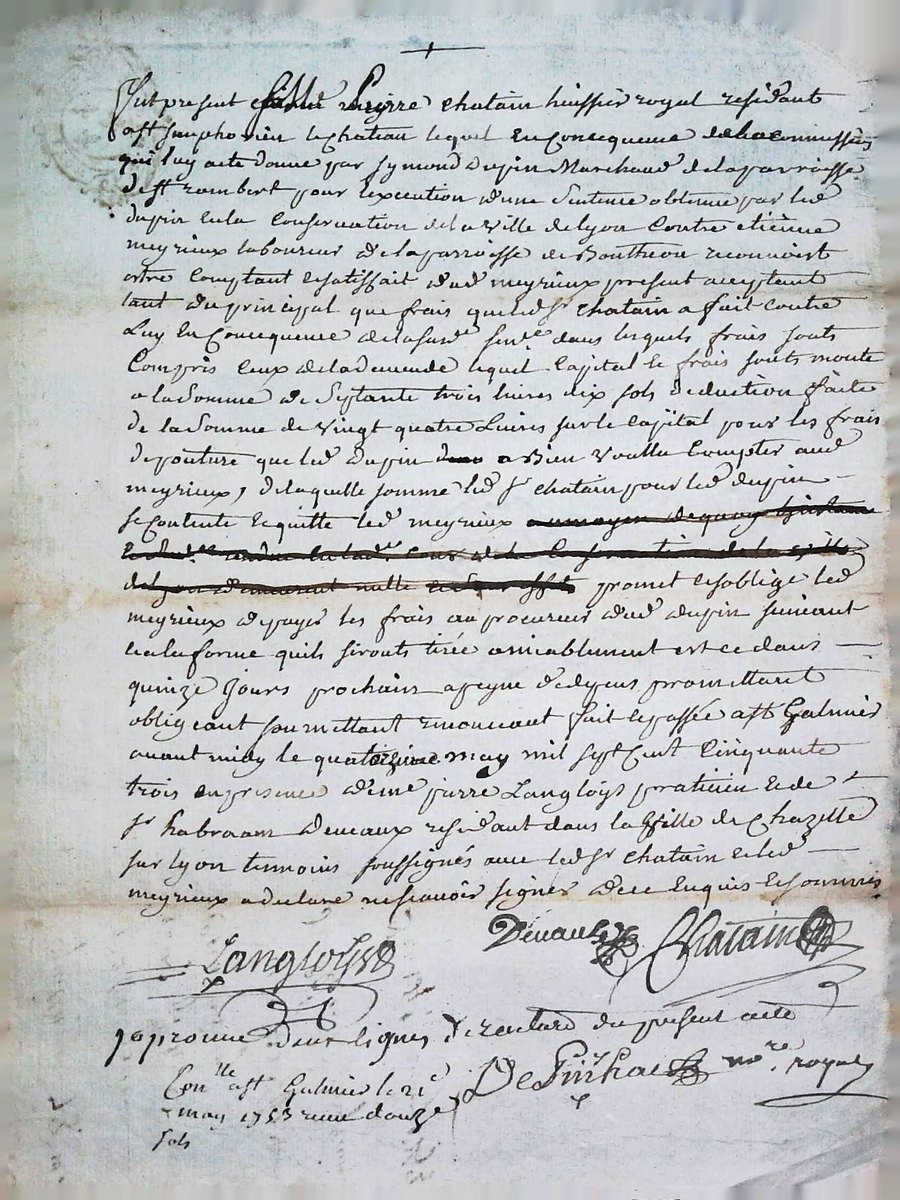 Fut present Pierre chatain huissier royal residant
a st Simphorien le chateau lequel En Consequence de la commission
qui luy a ete donné par Symond Dupin Marchand de la parroisse
de st rambert pour l'execution d'une Sentence obtenue par led
dupin en la Conservation de la ville de lyon Contre etienne
meyrieux laboureur de la parroisse de Bontheon reconnoist
estre Comptant et satisfait dud meyrieux present acceptant
tant du principal que frais que led sr chatain a fait contre
Luy En Consequence de la susde sence dans lesquels frais sont
Compris Ceux de la demande lequel Capital et frais sonts monte
a la Somme de Septante trois livres dix sols deduction faite
de la Somme de Vingt quatre Livres sur le Capital pour les frais
de que led Dupin a Bien Voullu Compter aud
meyrieux, de laquelle somme led sr chatain pour led dupin
se Contente et quitte led meyrieux
promet et s'oblige led
meyrieux de payer les frais au procureur dud dupin suivant
et a la forme quils sironts tirée amiablement et ce dans
quinze Jours prochain a peyne de depens promettant
obligeant soumettant renoncant fait et passée a st Galmier
avant midy le quatorzieme may mil sept Cent Cinquante
trois en presence de me pierre Langloys praticien et de
sr habraam Deveaux residant dans la Ville de Chazelle
sur lyon temoins soussignés avec led sr chatain et led
meyrieux a declaré ne scavoir signer de ce Enquis et sommés
Langloys
Devaux
Chatain
Japrouve deux lignes de racture du present acte
Conlle a st Galmier le 21e
may 1753 reçu douze
sols
nore royal